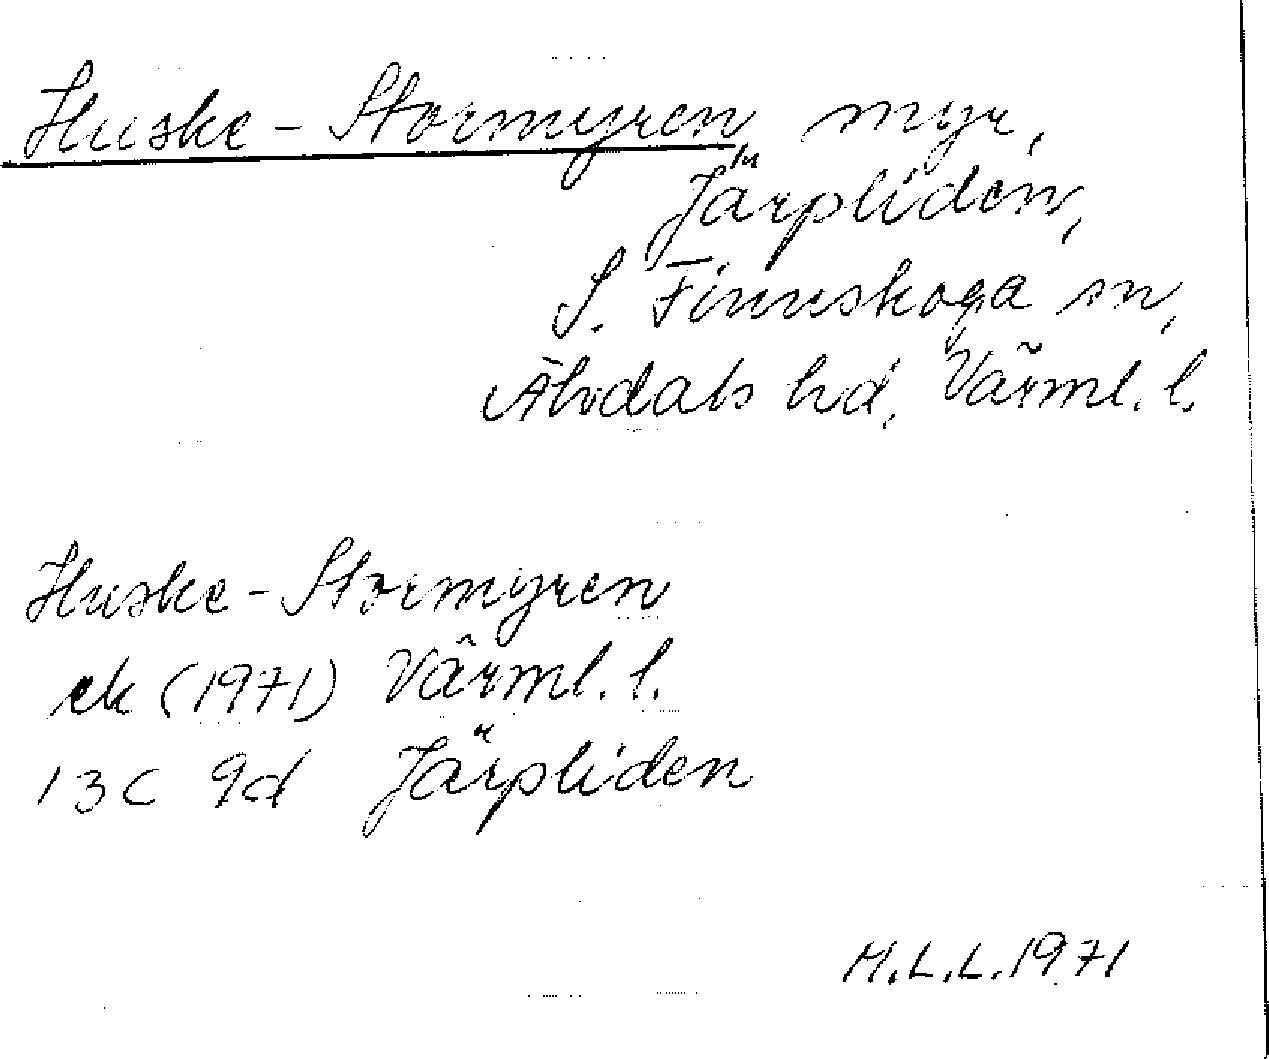 Huske-Stormyren, myr,
Järpliden,
S. Finnskoga sn,
Älvdals hd, Värml. l.
Huske-Stormyren
ek (1971) Värml. l.
13C 9d Järpliden
M.L.L. 1971